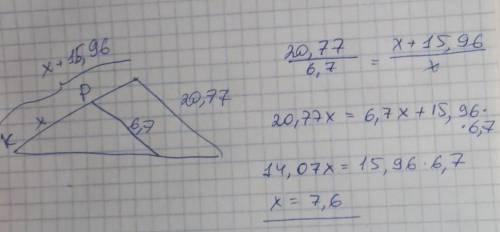 x + 15,96
P
20,77
x
6,7
K
20,77 / 6,7 = x + 15,96 / x
20,77x = 6,7x + 15,96 ·
· 6,7
14,07x = 15,96 · 6,7
x = 7,6